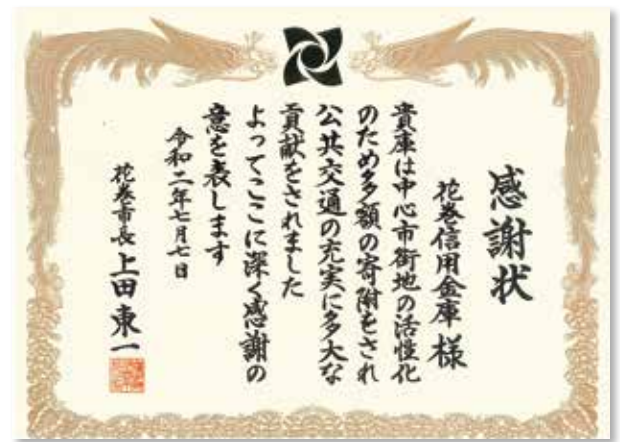 感謝状
花巻信用金庫様
貴庫は中心市街地の活性化
のため多額の寄附をされ
公共交通の充実に多大な
貢献をされました
よってここに深く感謝の
意を表します
令和二年七月七日
花巻市長 上田東一